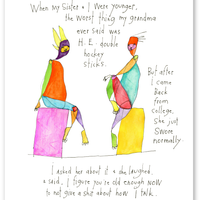 When my sister & I were younger,
the worst thing my grandma
ever said was
H. E. double
hockey
sticks.
But after
I came
back
from
college,
she just
swore
normally
I asked her about it & she laughed
& said, I figure you're old enough NOW
to not give a shit about how I talk.